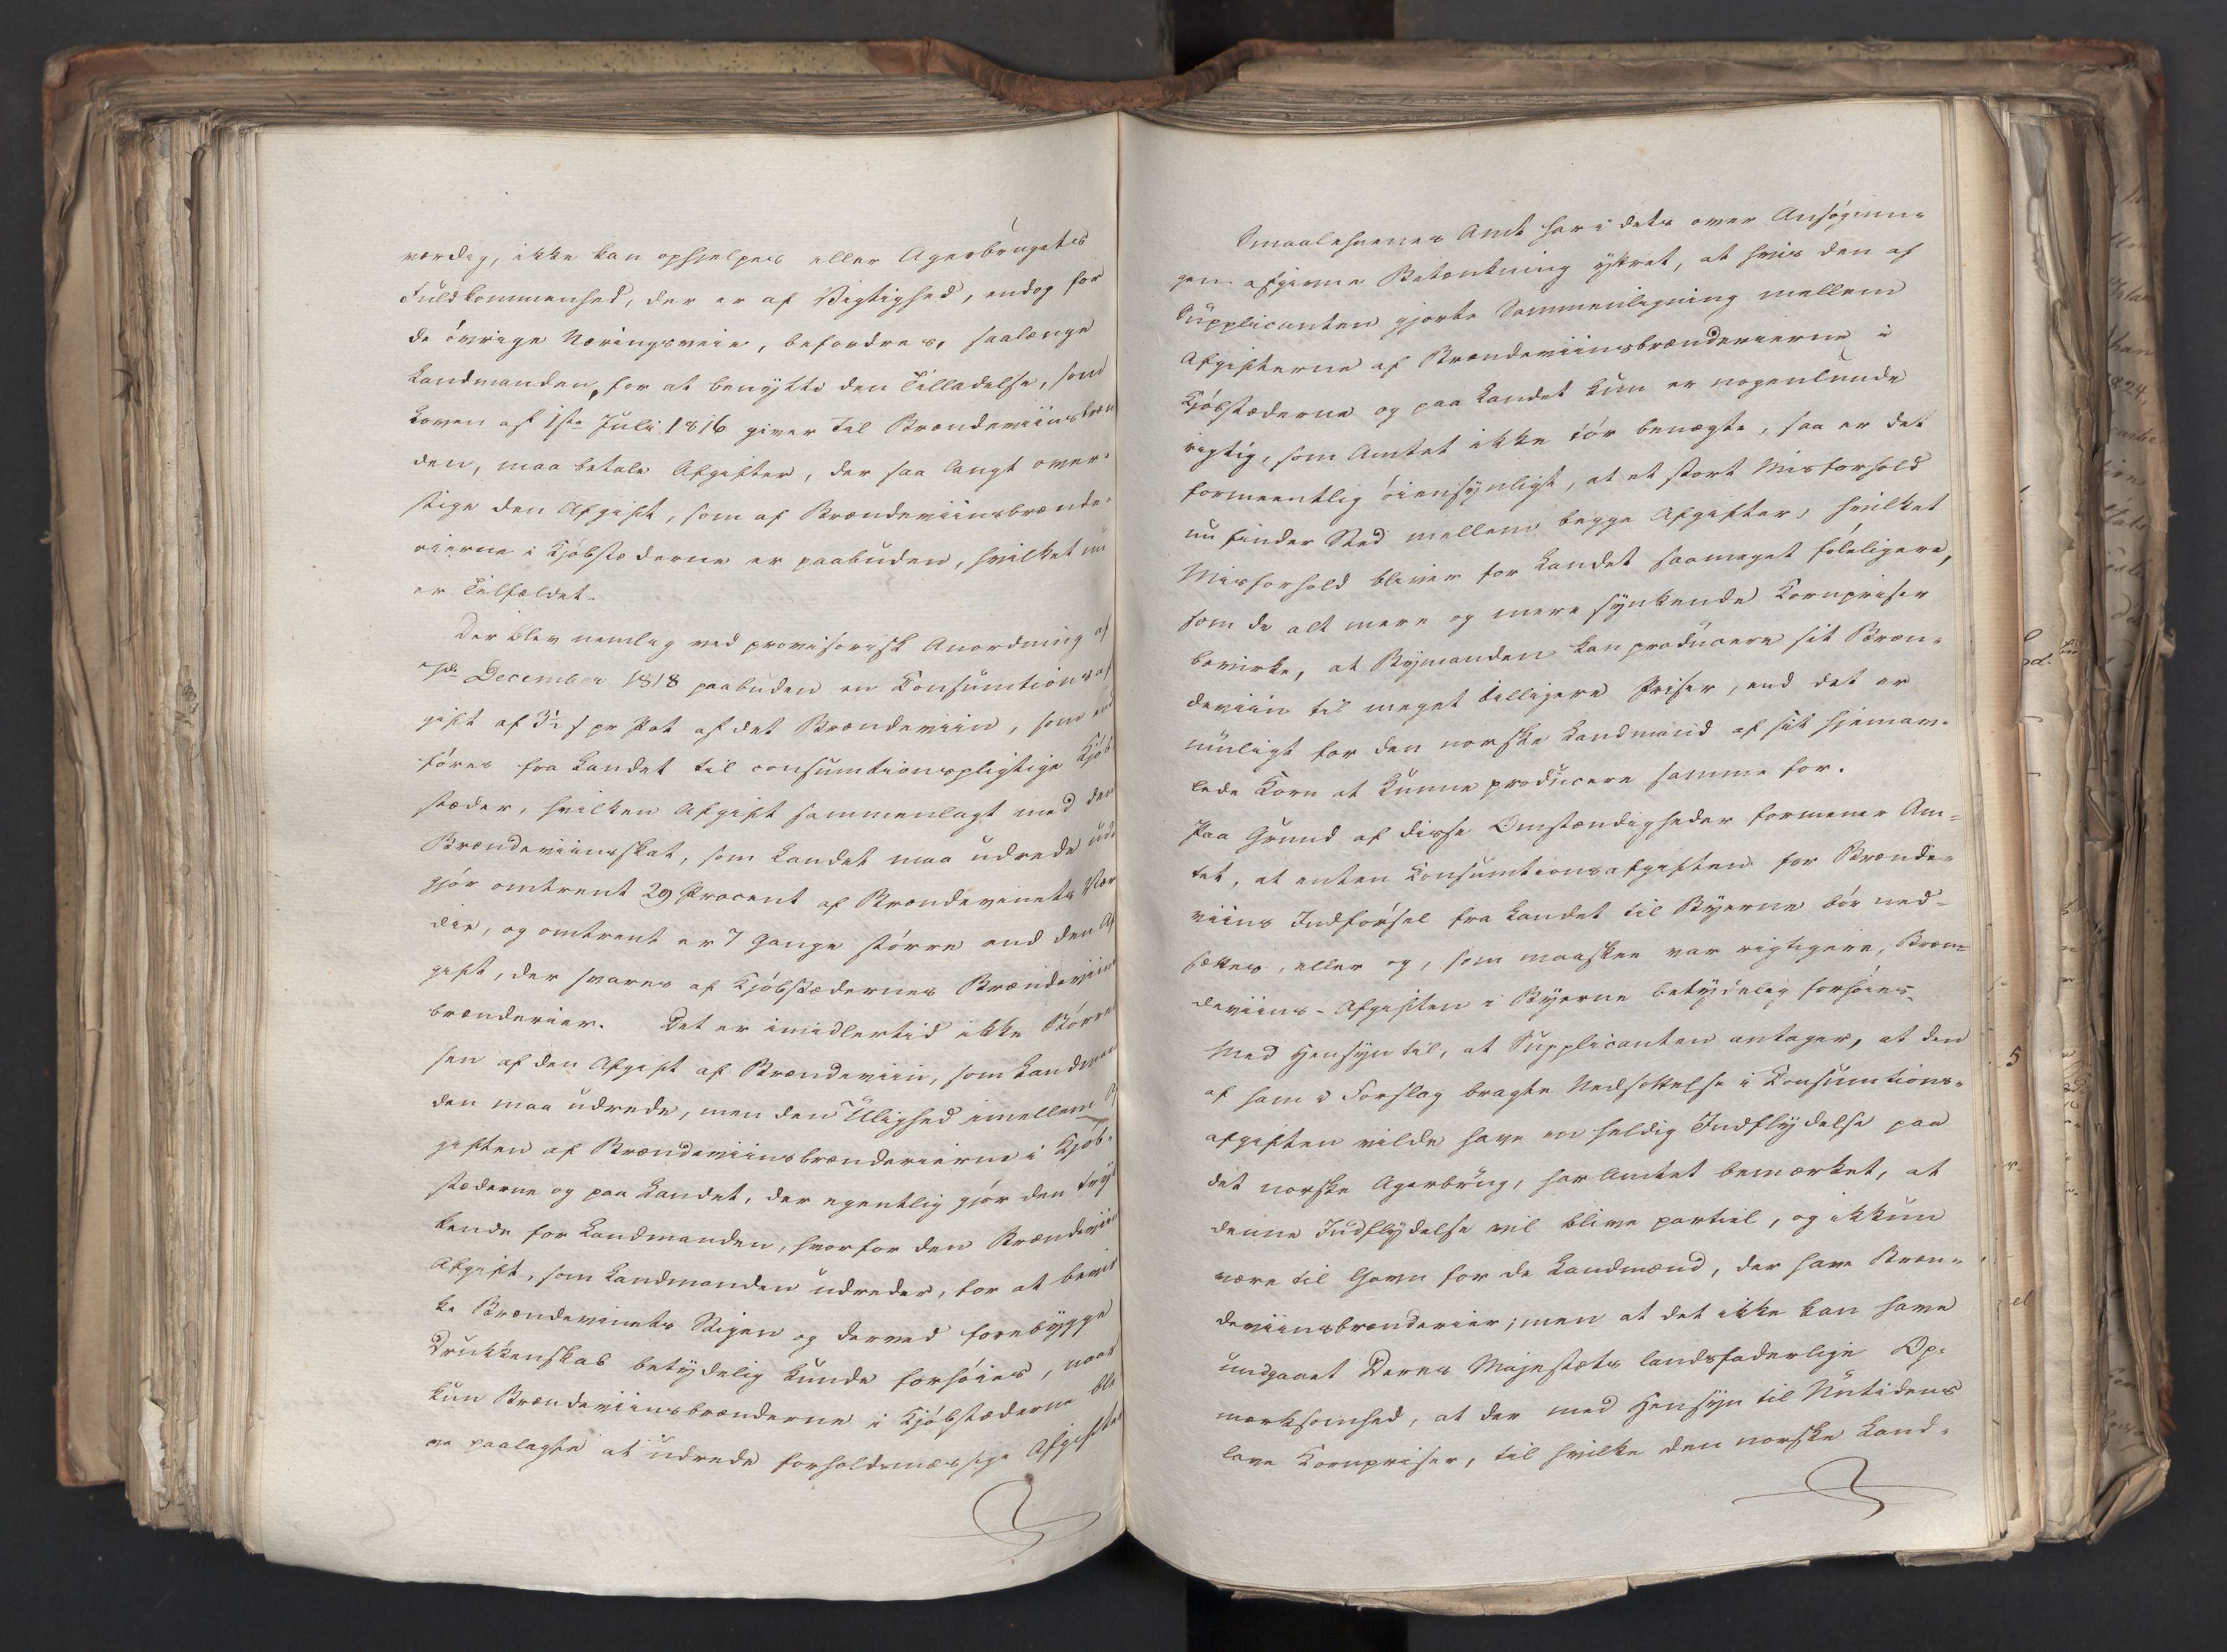 værdig, ikke kan ophjelpes eller Agerbrugets
Fuldkommenhed, der er af Vigtighed, endog for
de övrige Næringsveie, befordres, saalænge
Landmanden, for at benytte den Tilladelse, som
Loven af 1ste Juli 1816 giver til Brændeviinsbræn
den, maa betale Afgifter, der saa langt over-
stige den Afgift, som af Brændeviinsbrænde-
rierne i Kjöbstæderne er paabuden, hvilket nu
er Tilfældet.
Der blev nemlig ved provisorisk Anordning af
December 1818 paabuden en Consumtionsaf
gift af 3½ s pr Pot af det Brændeviin, som ind
föres fra Landet til consumtionspligtige Kjöb
stæder, hvilken Afgift sammenlagt med den
Brændeviinsskat, som Landet maa udrede ud
gjör omtrent 29 Procent af Brændevinets Vær
die, og omtrent er 7 Gange större end den Af
gift, der svares af Kjöbstædernes Brændeviins
brænderier. Det er imidlertid ikke Större
sen af den Afgift af Brændeviin, som Landman
den maa udrede, men den Ulighed imellem Af
giften af Brændeviinsbrænderierne i Kjöb-
stæderne og paa Landet, der egentlig gjör den tryk
kende for Landmanden, hvorfor den Brændeviins
Afgift, som Landmanden udreder, for at bevir
ke Brændevinets Stigen og derved forebygge
Drukkenskab betydelig kunde forhöies, naar
kun Brændeviinsbrænderne i Kjöbstæderne ble
ve paalagte at udrede forholdsmæssige Afgifter
Smaalehnenes Amt har i dets over Ansögnin-
gen afgivne Betænkning yttret, at hvis den af
Supplicanten gjorte Sammenligning mellem
Afgifterne af Brændeviinsbrænderierne i
Kjöbstæderne og paa Landet kun er nogenlunde
rigtig, som Amtet ikke tör benægte, saa er det
formeentlig öiensynligt, at et stort Misforhold
nu finder Sted mellem begge Afgifter, hvilket
Misforhold bliver for Landet saameget föleligere,
som de alt mere og mere synkende Kornpriser
bevirke, at Bymanden kan producere sit Bræn-
deviin til meget billigere Priser, end det er
muligt for den norske Landmand af sit hjemav-
lede Korn at kunne producere samme for.
Paa Grund af disse Omstændigheder formener Am-
tet, at enten Konsumtionsafgiften for Brænde-
viins Indförsel fra Landet til Byerne bör ned-
sættes, eller og, som maaskee var rigtigere, Bræn-
deviins-Afgiften i Byerne betydelig forhöies.
Med Hensyn til, at Supplicanten antager, at den
af ham i Forslag bragte Nedsættelse i Konsumtions-
afgiften vilde have en heldig Indflydelse paa
det norske Agerbrug, har Amtet bemærket, at
denne Indflydelse vil blive partiel, og ikkun
være til Gavn for de Landmænd, der have Bræn-
deviinsbrænderier; men at det ikke kan have
undgaaet Deres Majestæts landsfaderlige Op-
mærksomhed, at der med Hensyn til Nutidens
lave Kornpriser, til hvilke den norske Land-